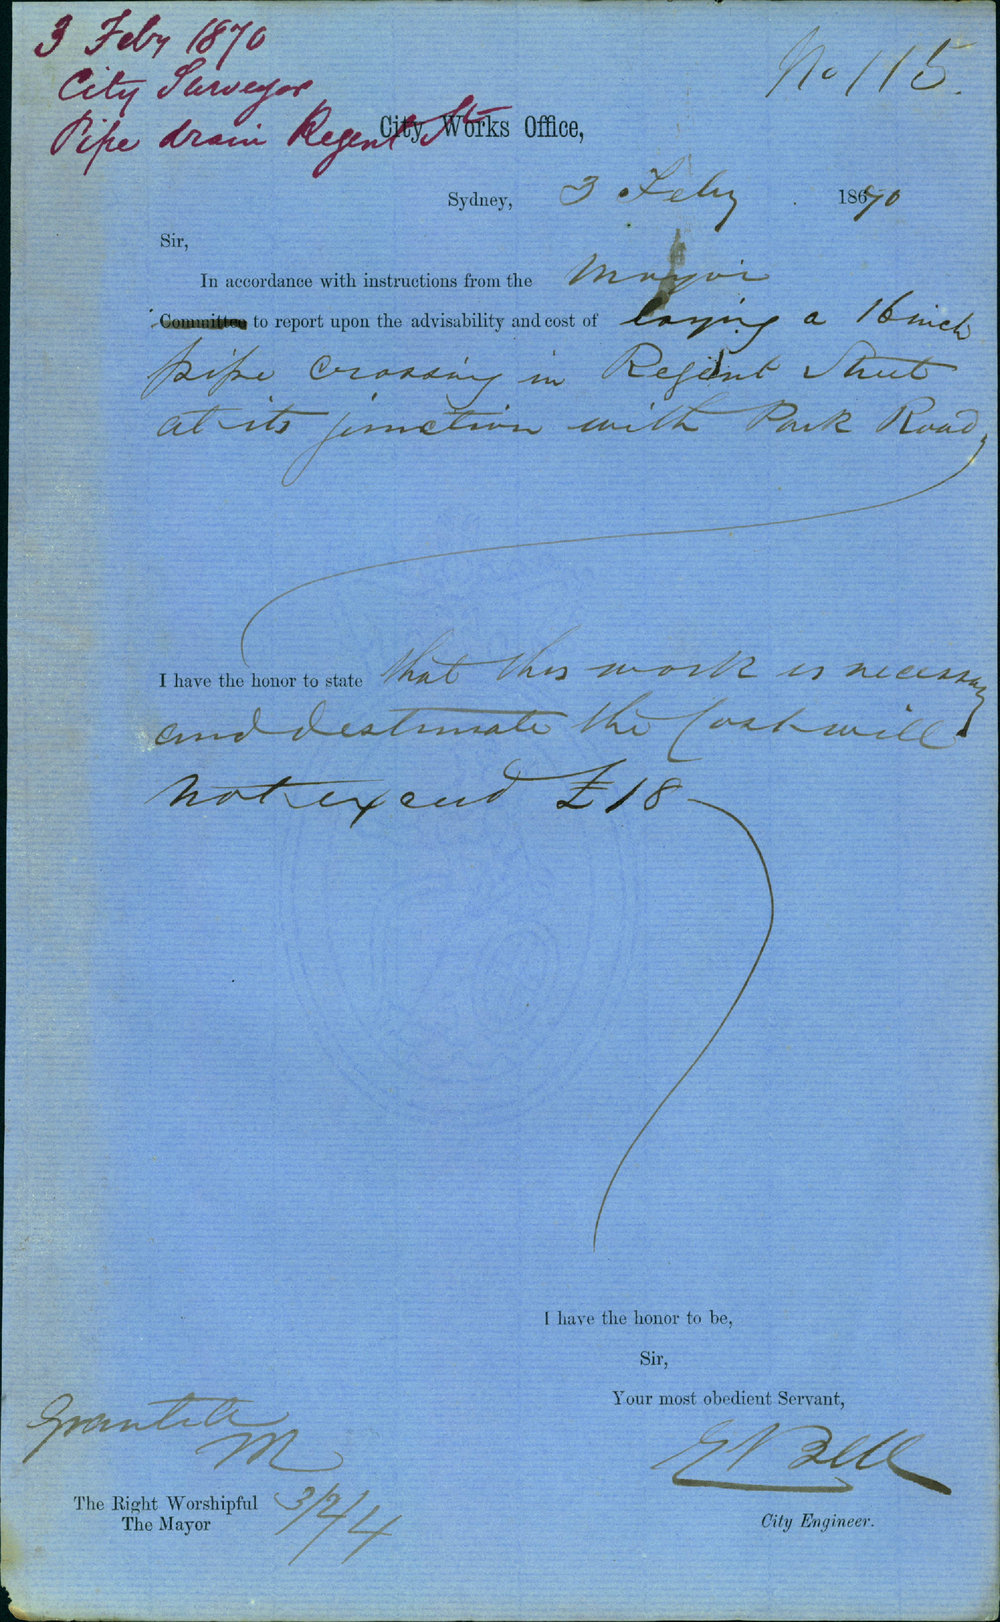 3 Feby 1870
City Surveyor
Pipe drain Regent St
No 115.
City Works Office,
Sydney, 3 Feby 18670
Sir,
In accordance with instructions from the Mayor
Committee to report upon the advisability and cost of laying a 16 inch
pipe crossing in Regent Street
at its junction with Park Road,
I have the honor to state that this work is necessary
and I estimate the Cost will
not exceed £18
I have the honor to be,
Sir,
Your most obedient Servant,
E Bell
City Engineer.
M
The Right Worshipful
The Mayor
3/2/